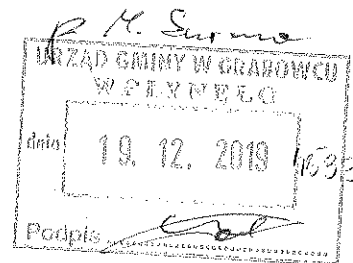 p. M.
URZĄD GMINY W GRABOWCU
WPŁYNĘŁO
dnia 19. 12. 2019
Podpis